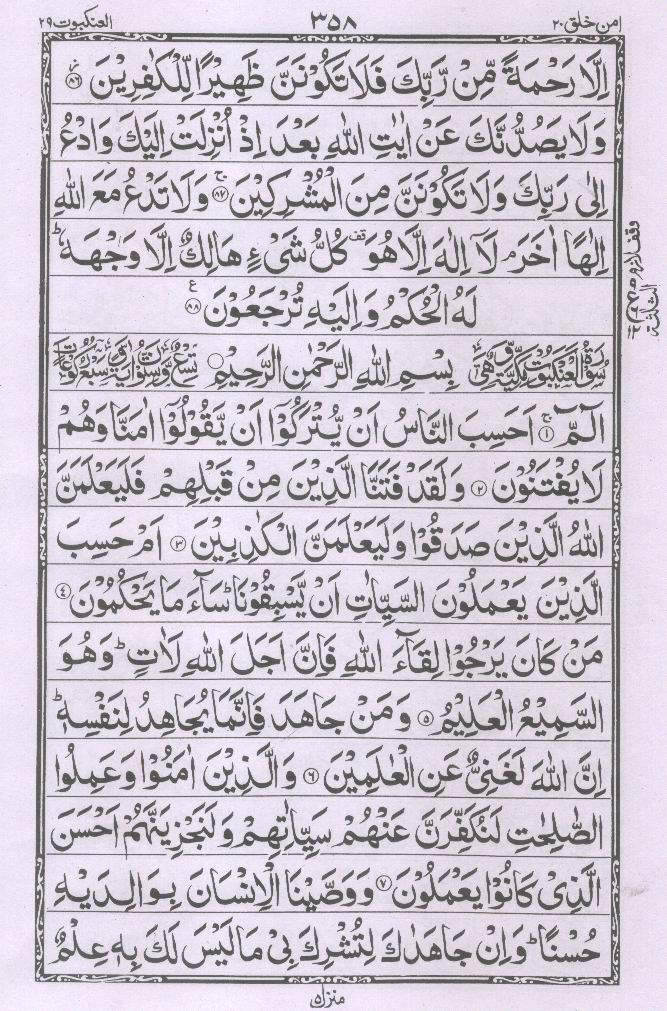 العنكبوت ٢٩ ٣٥٨ امن خلق ٢٠
اِلَّا رَحْمَةً مِّنْ رَّبِّكَ فَلَا تَكُوْنَنَّ ظَهِيْرًا لِّلْكٰفِرِيْنَ ﴿٨٦﴾
وَلَا يَصُدُّنَّكَ عَنْ اٰيٰتِ اللّٰهِ بَعْدَ اِذْ اُنْزِلَتْ اِلَيْكَ وَادْعُ
اِلٰى رَبِّكَ وَلَا تَكُوْنَنَّ مِنَ الْمُشْرِكِيْنَ ﴿٨٧﴾ وَلَا تَدْعُ مَعَ اللّٰهِ
اِلٰهًا اٰخَرَ ۘ لَاۤ اِلٰهَ اِلَّا هُوَ قف كُلُّ شَىْءٍ هَالِكٌ اِلَّا وَجْهَهٗ ؕ
لَهُ الْحُكْمُ وَاِلَيْهِ تُرْجَعُوْنَ ﴿٨٨﴾
سُوْرَةُ الْعَنْكَبُوْتِ مَكِّيَّةٌ وَّهِىَ بِسْمِ اللّٰهِ الرَّحْمٰنِ الرَّحِيْمِ تِسْعٌ وَّسِتُّوْنَ اٰيَةً وَّسَبْعُ رُكُوْعَاتٍ
الٓمّٓ ﴿١﴾ اَحَسِبَ النَّاسُ اَنْ يُّتْرَكُوْۤا اَنْ يَّقُوْلُوْۤا اٰمَنَّا وَهُمْ
لَا يُفْتَنُوْنَ ﴿٢﴾ وَلَقَدْ فَتَنَّا الَّذِيْنَ مِنْ قَبْلِهِمْ فَلَيَعْلَمَنَّ
اللّٰهُ الَّذِيْنَ صَدَقُوْا وَلَيَعْلَمَنَّ الْكٰذِبِيْنَ ﴿٣﴾ اَمْ حَسِبَ
الَّذِيْنَ يَعْمَلُوْنَ السَّيِّاٰتِ اَنْ يَّسْبِقُوْنَا ؕ سَآءَ مَا يَحْكُمُوْنَ ﴿٤﴾
مَنْ كَانَ يَرْجُوْا لِقَآءَ اللّٰهِ فَاِنَّ اَجَلَ اللّٰهِ لَاٰتٍ ؕ وَهُوَ
السَّمِيْعُ الْعَلِيْمُ ﴿٥﴾ وَمَنْ جَاهَدَ فَاِنَّمَا يُجَاهِدُ لِنَفْسِهٖ ؕ
اِنَّ اللّٰهَ لَغَنِىٌّ عَنِ الْعٰلَمِيْنَ ﴿٦﴾ وَالَّذِيْنَ اٰمَنُوْا وَعَمِلُوا
الصّٰلِحٰتِ لَنُكَفِّرَنَّ عَنْهُمْ سَيِّاٰتِهِمْ وَلَنَجْزِيَنَّهُمْ اَحْسَنَ
الَّذِىْ كَانُوْا يَعْمَلُوْنَ ﴿٧﴾ وَوَصَّيْنَا الْاِنْسَانَ بِوَالِدَيْهِ
حُسْنًا ؕ وَاِنْ جَاهَدٰكَ لِتُشْرِكَ بِىْ مَا لَيْسَ لَكَ بِهٖ عِلْمٌ
منزل ٥